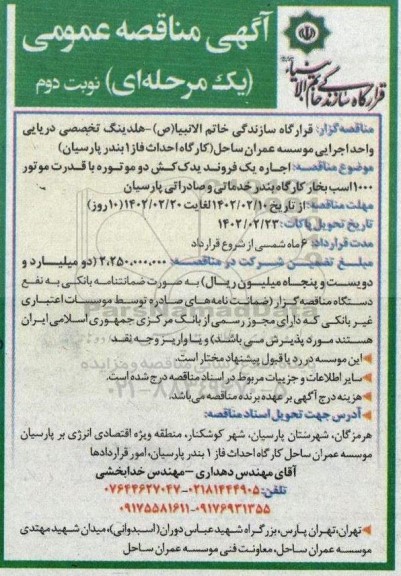 آگهی مناقصه عمومی
(یک مرحله‌ای) نوبت دوم
قرارگاه سازندگی خاتم الانبیاء
مناقصه‌گزار: قرارگاه سازندگی خاتم الانبیا(ص) -هلدینگ تخصصی دریایی
واحد اجرایی موسسه عمران ساحل(کارگاه احداث فاز ۱ بندر پارسیان)
موضوع مناقصه: اجاره یک فروند یدک‌کش دو موتوره با قدرت موتور
۱۰۰۰ اسب بخار کارگاه بندر خدماتی و صادراتی پارسیان
مهلت مناقصه: از تاریخ ۱۴۰۲/۰۲/۱۰ لغایت ۱۴۰۲/۰۲/۲۰ (۱۰روز)
تاریخ تحویل پاکات: ۱۴۰۲/۰۲/۲۳
مدت قرارداد: ۶ ماه شمسی از شروع قرارداد
مبلغ تضمین شرکت در مناقصه: ۲،۲۵۰،۰۰۰،۰۰۰ (دو میلیارد و
دویست و پنجاه میلیون ریال) به صورت ضمانتنامه بانکی به نفع
دستگاه مناقصه گزار (ضمانت نامه‌های صادره توسط موسسات اعتباری
غیر بانکی که دارای مجوز رسمی از بانک مرکزی جمهوری اسلامی ایران
هستند مورد پذیرش می باشد) و یا واریز وجه نقد
این موسسه در رد یا قبول پیشنهاد مختار است.
سایر اطلاعات و جزییات مربوط در اسناد مناقصه درج شده است.
هزینه درج آگهی بر عهده برنده مناقصه می‌باشد.
آدرس جهت تحویل اسناد مناقصه:
هرمزگان، شهرستان پارسیان، شهر کوشکنار، منطقه ویژه اقتصادی انرژی بر پارسیان
موسسه عمران ساحل کارگاه احداث فاز ۱ بندر پارسیان، امور قراردادها
آقای مهندس دهداری - مهندس خدابخشی
تلفن: ۰۲۱۸۱۴۴۴۹۰۵-۰۷۶۴۴۶۲۷۰۴۷
۰۹۱۷۶۹۳۱۳۵۵-۰۹۱۷۵۵۸۱۶۱۱
تهران، تهران پارس، بزرگراه شهید عباس دوران (اسبدوانی)، میدان شهید مهتدی
موسسه عمران ساحل، معاونت فنی موسسه عمران ساحل